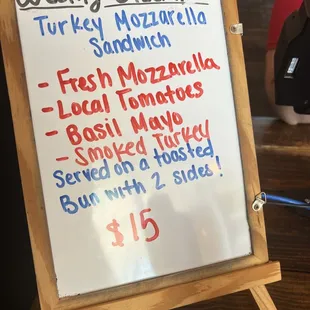 Turkey Mozzarella
Sandwich
- Fresh Mozzarella
- Local Tomatoes
- Basil Mayo
- Smoked Turkey
Served on a toasted
Bun with 2 sides!
$15